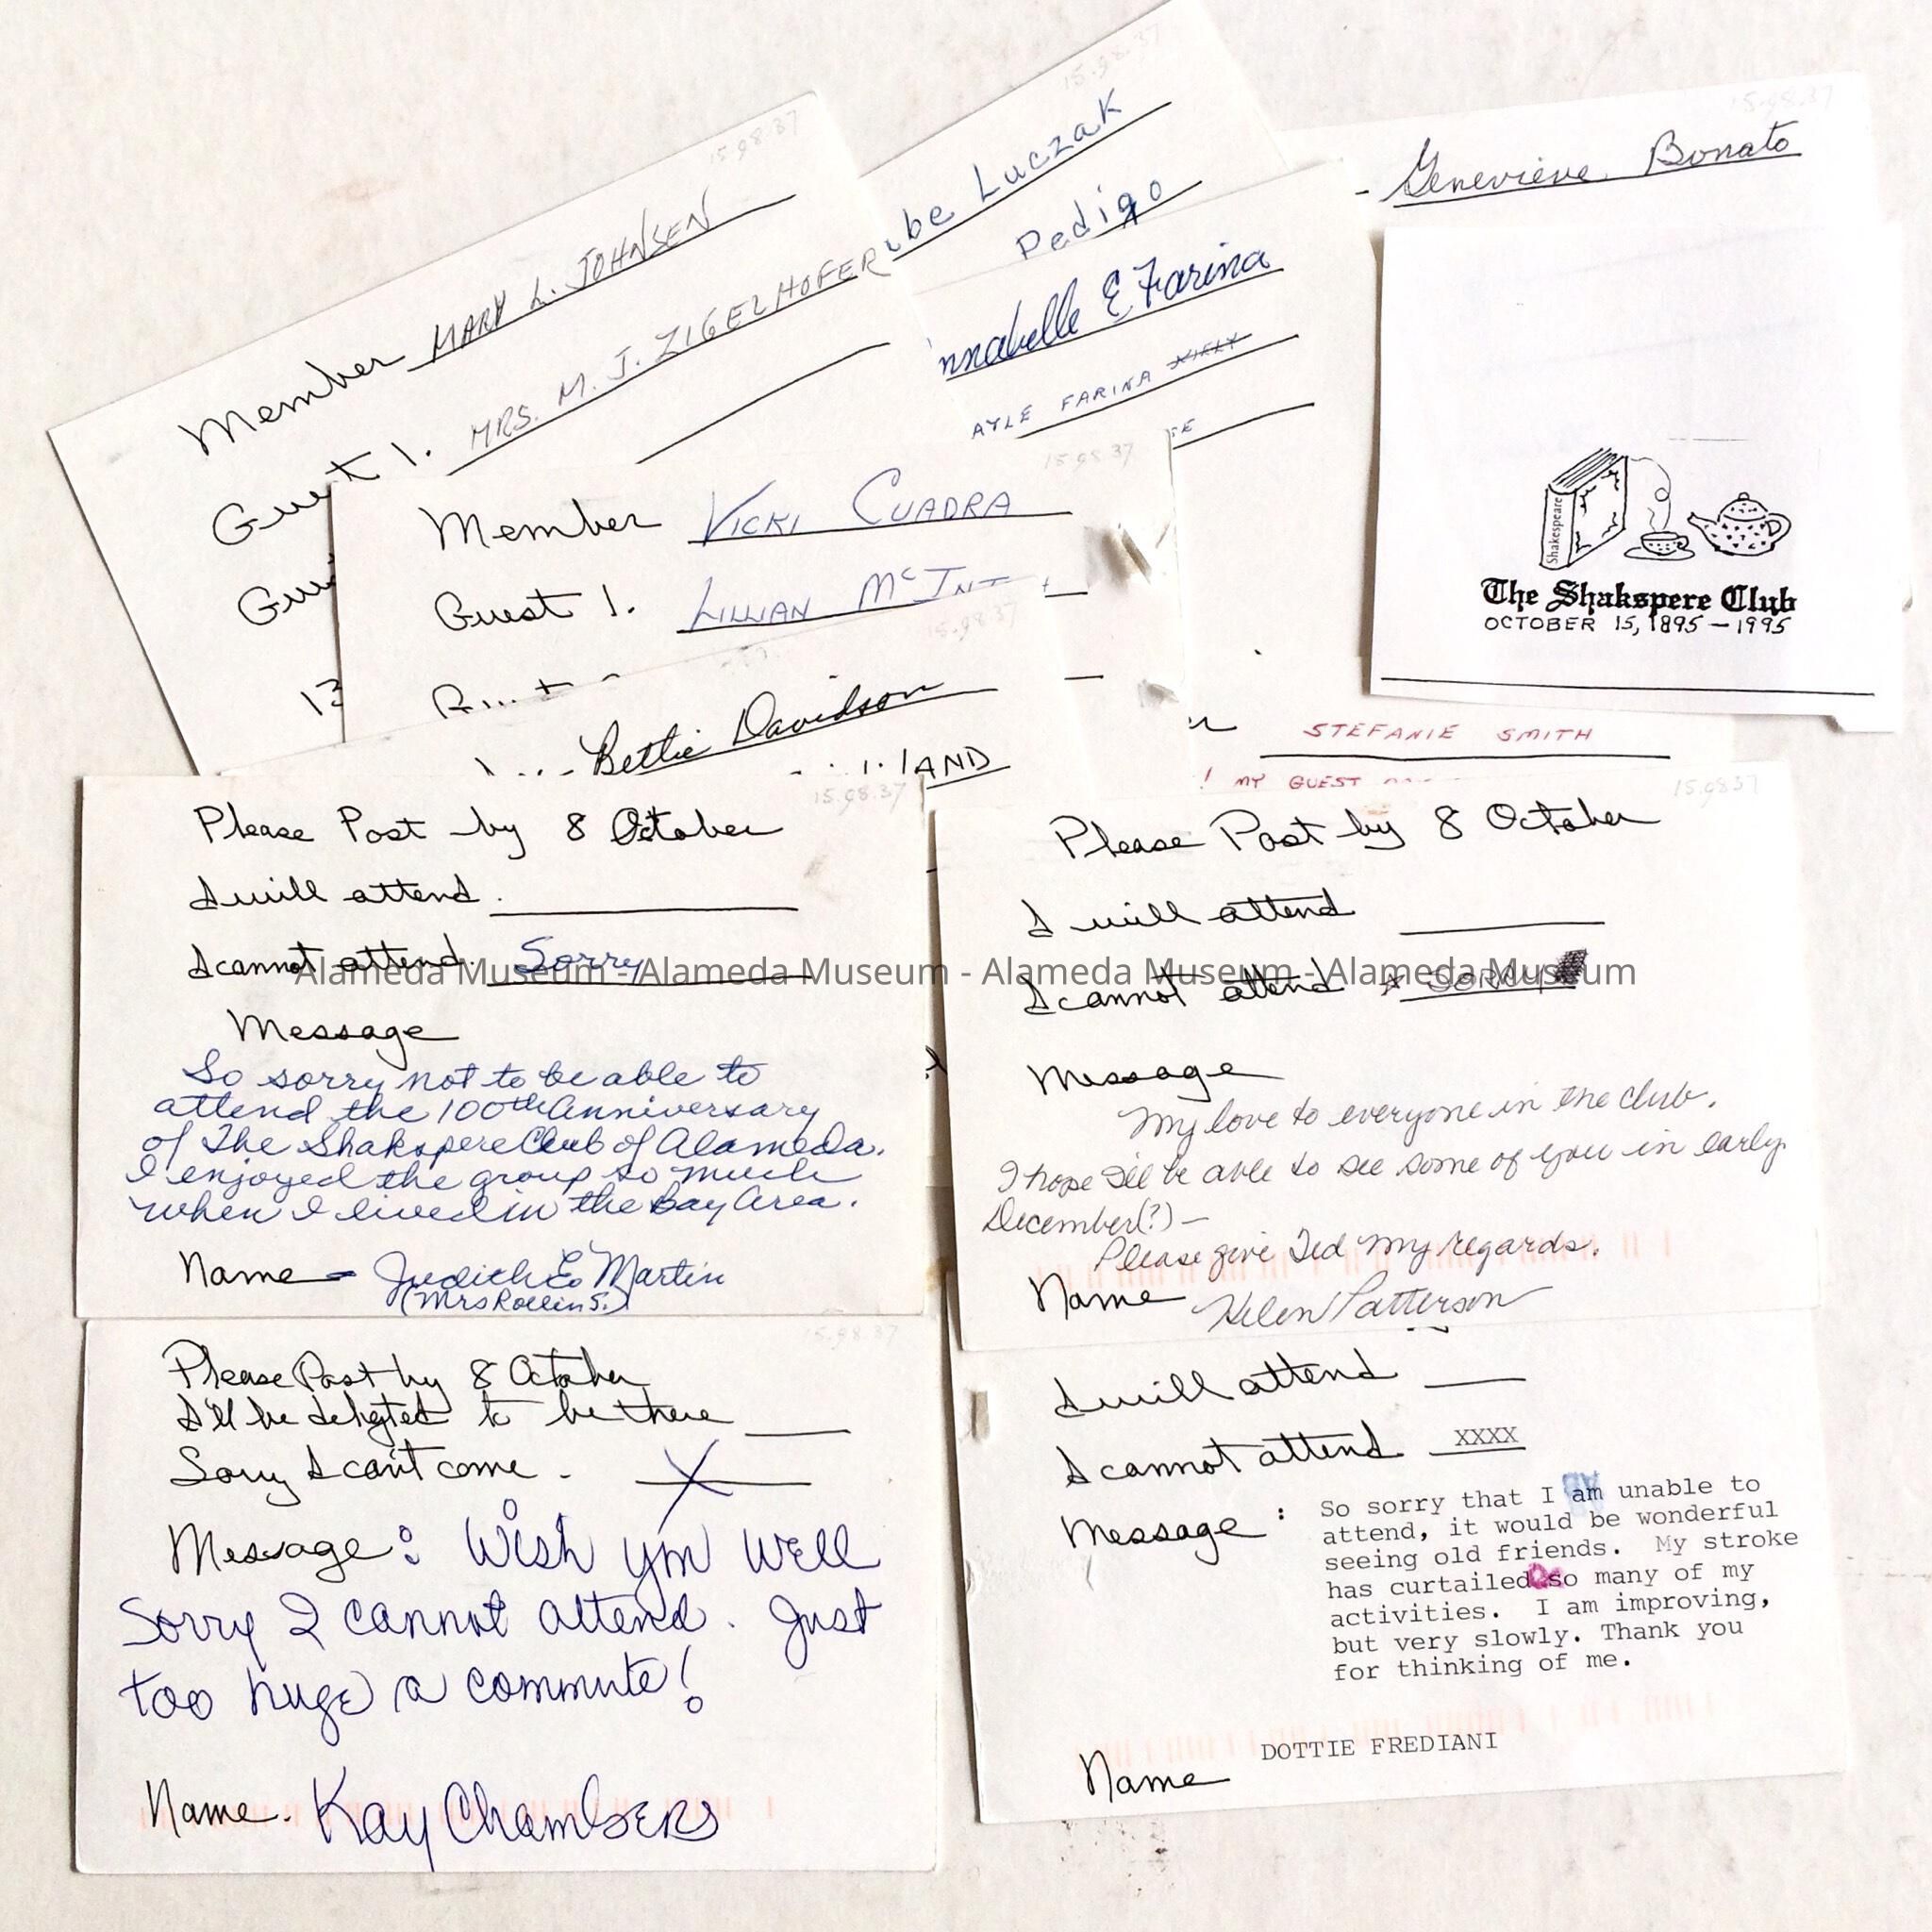 15.98.37
Member MARY L. JOHNSEN
Guest 1. MRS. M. J. ZIGELHOFER
15.98.37
be Luczak
Pedigo
nnabelle E Farina
AYLE FARINA
15.98.37
Genevieve Bonato
Shakespeare
The Shakspere Club
OCTOBER 15, 1895 — 1995
15.98.37
Member VICKI CUADRA
Guest 1. LILLIAN
15.98.37
Bettie Davidson
LAND
STEFANIE SMITH
! MY GUEST
15.98.37
Please Post by 8 October
I will attend.
I cannot attend. Sorry
Message
So sorry not to be able to
attend the 100th Anniversary
of The Shakspere Club of Alameda.
I enjoyed the group so much
when I lived in the Bay Area.
Name - Judith E. Martin
(Mrs Rollin S.)
15.98.37
Please Post by 8 October
I will attend
I cannot attend SORRY
Message
My love to everyone in the club.
I hope I'll be able to see some of you in early
December(?) —
Please give Ted my regards.
Name Helen Patterson
Alameda Museum - Alameda Museum - Alameda Museum - Alameda Museum
15.98.37
Please Post by 8 October
I'll be delighted to be there
Sorry I can't come. X
Message: Wish you well
Sorry I cannot attend. Just
too huge a commute!
Name. Kay Chambers
I will attend
I cannot attend XXXX
Message : So sorry that I am unable to
attend, it would be wonderful
seeing old friends. My stroke
has curtailed so many of my
activities. I am improving,
but very slowly. Thank you
for thinking of me.
Name DOTTIE FREDIANI